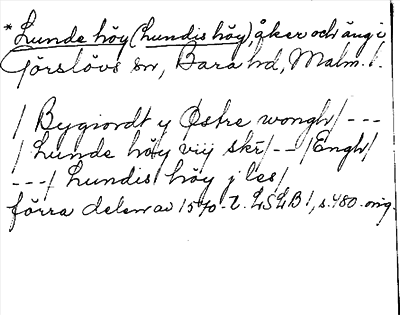 *Lunde höy (Lundis höy), åker och äng i
Görslövs sn, Bara hd, Malm. l.
/ Bygiordt y Østre wongh/---
/ Lunde höy viij skr/--/Engh/
---/ Lundis höy j les/
förra delen av 1570-t. LSLB 1, s. 480. orig.